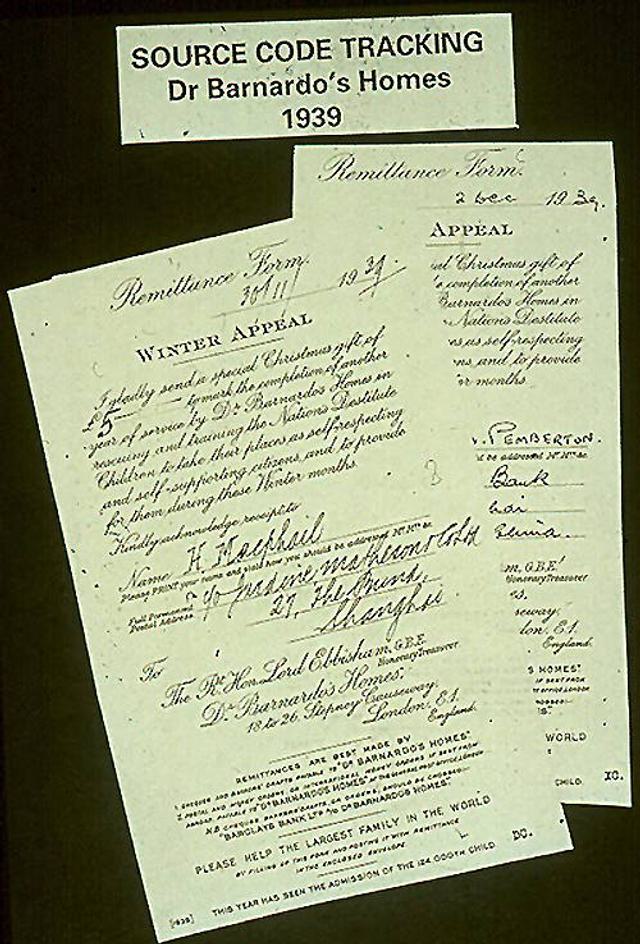 SOURCE CODE TRACKING
Dr Barnardo's Homes
1939
Remittance Form.
2 Dec 1939.
APPEAL
ial Christmas gift of
completion of another
Barnardo's Homes in
Nation's Destitute
as self-respecting
and to provide
months.
PEMBERTON.
Bank
China.
G.B.E.
Honorary Treasurer
seway,
don, E.1.
England.
S HOMES"
IF SENT FROM
WORLD
CHILD.
Remittance Form.
30/11 1939
WINTER APPEAL
I gladly send a special Christmas gift of
£5 to mark the completion of another
year of service by Dr Barnardo's Homes in
rescuing and training the Nation's Destitute
Children to take their places as self-respecting
and self-supporting citizens, and to provide
for them during these Winter months.
Kindly acknowledge receipt to
Name H. Macphail
Please PRINT your name and state how you should be addressed Mr Mrs &c.
Full Permanent Postal Address c/o Jardine, Matheson & Co Ltd
27, The Bund,
Shanghai.
To
The Rt. Hon. Lord Ebbisham, G.B.E.
Honorary Treasurer
Dr Barnardo's Homes,
18 to 26, Stepney Causeway,
London, E.1.
England.
REMITTANCES ARE BEST MADE BY
1. CHEQUES AND BANKERS' DRAFTS PAYABLE TO "DR BARNARDO'S HOMES".
2. POSTAL AND MONEY ORDERS, OR INTERNATIONAL MONEY ORDERS IF SENT FROM
ABROAD, PAYABLE TO "DR BARNARDO'S HOMES" AT THE GENERAL POST OFFICE, LONDON
N.B. CHEQUES, BANKERS' DRAFTS, OR ORDERS, SHOULD BE CROSSED:-
"BARCLAYS BANK LTD A/C DR BARNARDO'S HOMES".
PLEASE HELP THE LARGEST FAMILY IN THE WORLD
BY FILLING UP THIS FORM AND POSTING IT WITH REMITTANCE
IN THE ENCLOSED ENVELOPE
[1939] THIS YEAR HAS SEEN THE ADMISSION OF THE 124,000TH CHILD. DC.